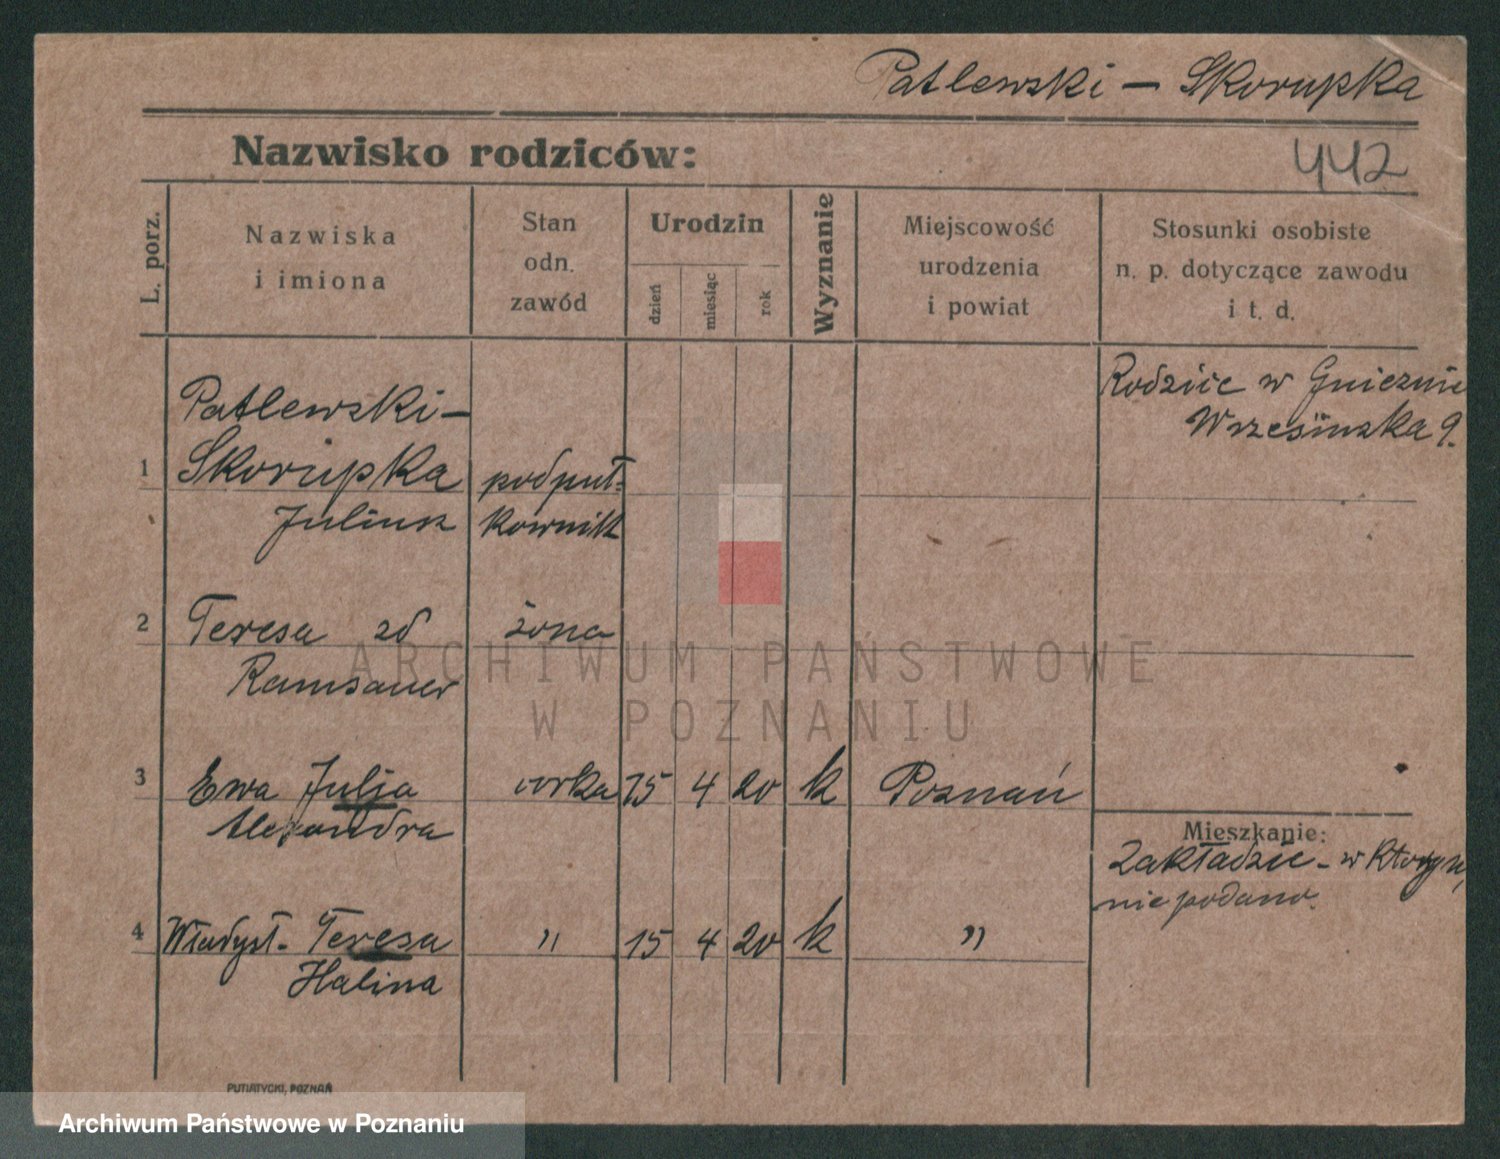 Patlewski – Skorupka
Nazwisko rodziców:
442
L. porz.
Nazwiska
i imiona
Stan
odn.
zawód
Urodzin
dzień
miesiąc
rok
Wyznanie
Miejscowość
urodzenia
i powiat
Stosunki osobiste
n. p. dotyczące zawodu
i t. d.
Rodzice w Gnieznie
Wrzesińska 9.
Patlewski –
1 Skorupka podpuł=
Juliusz kownik
2 Teresa zd żona
Ramsauer
3 Ewa Julja córka 15 4 20 k Poznań
Alexandra
Mieszkanie:
Zakładzie – w
nie podano.
4 Władysł. Teresa " 15 4 20 k "
Halina
PUTIATYCKI, POZNAŃ
ARCHIWUM PAŃSTWOWE
W POZNANIU
Archiwum Państwowe w Poznaniu